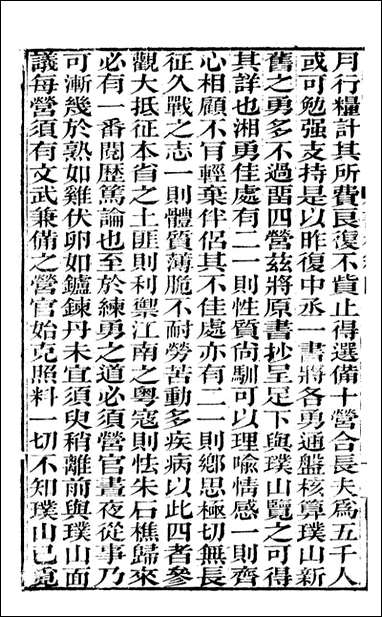 月行糧計其所費良復不貲止得選備十營合長夫爲五千人
或可勉强支持是以昨復中丞一書將各勇通盤核算璞山新
舊之勇多不過畱四營茲將原書抄呈足下與璞山覽之可得
其詳也湘勇佳處有二一則性質尙馴可以理喻情感一則齊
心相顧不肯輕棄伴侶其不佳處亦有二一則鄉思極切無長
征久戰之志一則體質薄脆不耐勞苦動多疾病以此四者參
觀大抵征本省之土匪則利禦江南之粵寇則怯朱石樵歸來
必有一番閱歷篤論也至於練勇之道必須營官晝夜從事乃
可漸幾於熟如雞伏卵如鑪鍊丹未宜須臾稍離前與璞山面
議每營須有文武兼備之營官始克照料一切不知璞山已覓